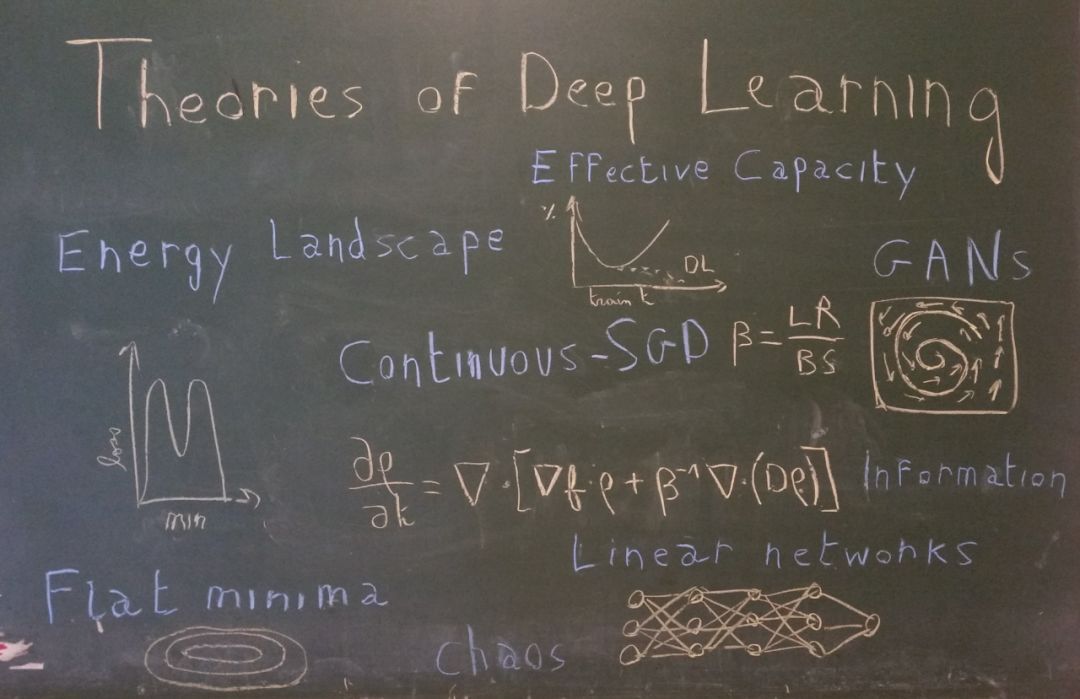 Theories of Deep Learning
Effective Capacity
%
DL
train t
Energy Landscape
GANs
Continuous-SGD β = LR/BS
loss
min
∂ρ/∂t = ∇·[∇f·ρ + β⁻¹∇·(Dρ)]
Information
Linear networks
Flat minima
chaos